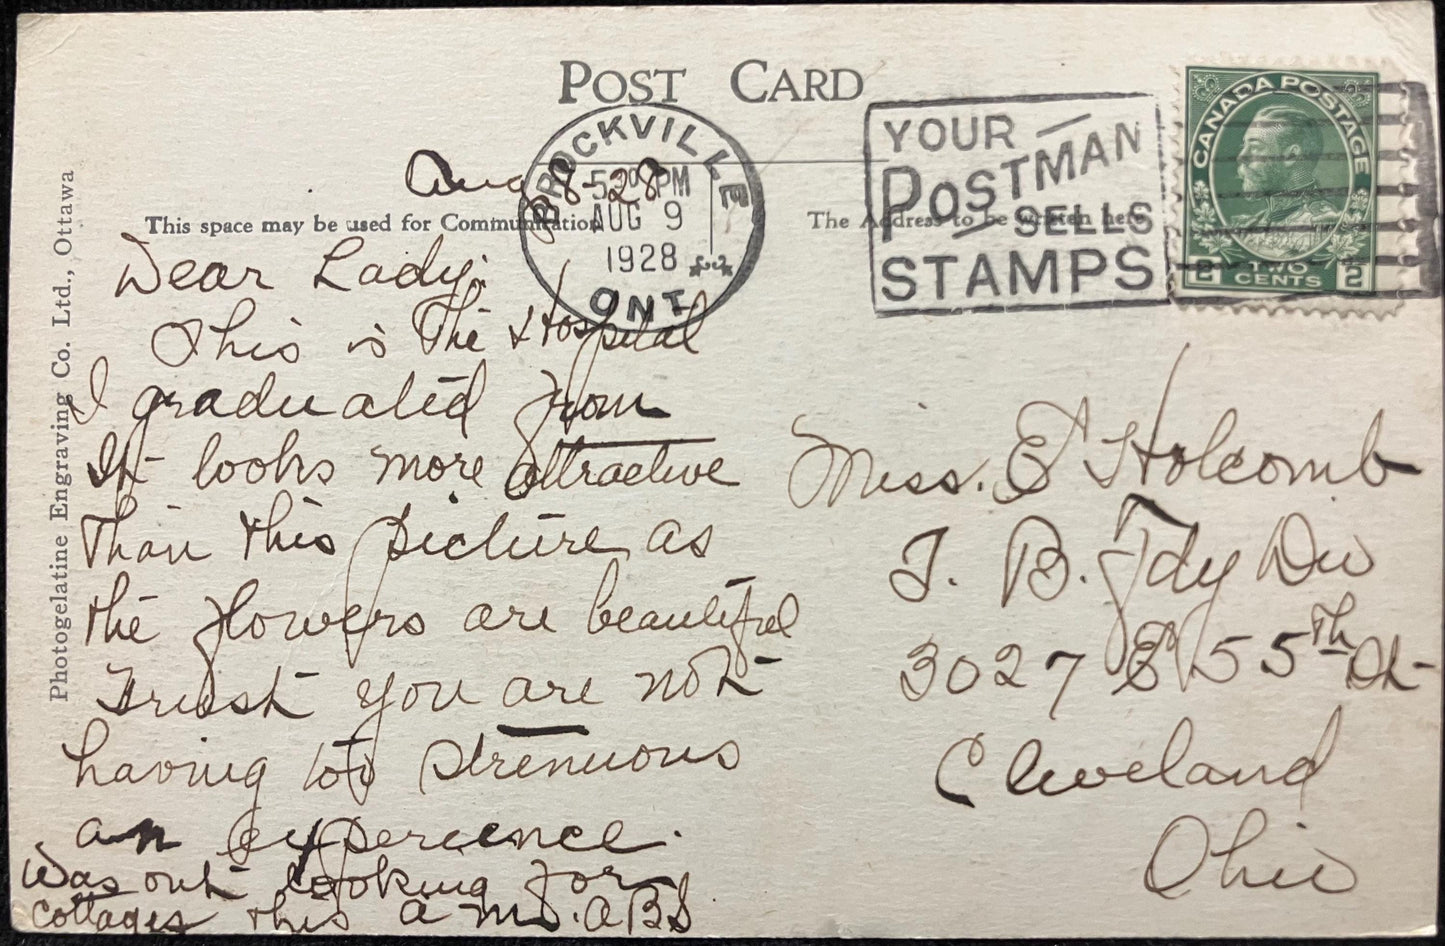 POST CARD
BROCKVILLE
5 30 PM
AUG 9
1928
ONT
YOUR
POSTMAN
SELLS
STAMPS
CANADA POSTAGE
2 TWO CENTS 2
Photogelatine Engraving Co. Ltd., Ottawa
Aug 8-28
This space may be used for Communication
The Address to be written here
Dear Lady.
This is The Hospital
I graduated from
It looks more attractive
Than this picture as
the flowers are beautiful
Trust you are not
having too strenuous
an experience.
Was out looking for
cottages this a m. ABS
Miss. E Holcomb
T. B. Fdy Div
3027 E 55th St
Cleveland
Ohio